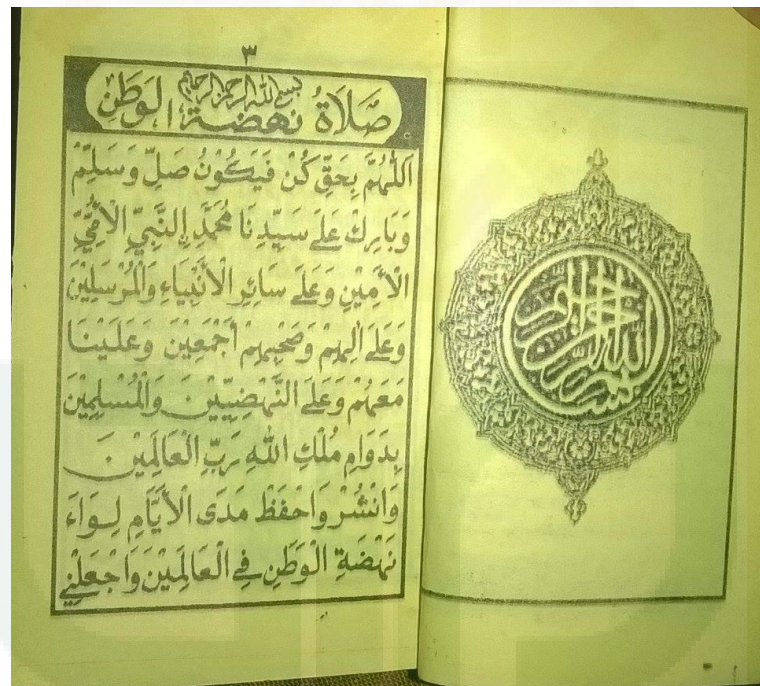 بسم الله الرحمن الرحيم
٣
بِسْمِ اللهِ الرَّحْمٰنِ الرَّحِيْمِ
صَلَاةُ نَهْضَةِ الْوَطَنِ
اَللّٰهُمَّ بِحَقِّ كُنْ فَيَكُوْنُ صَلِّ وَسَلِّمْ
وَبَارِكْ عَلَى سَيِّدِنَا مُحَمَّدٍ إِلنَّبِيِّ الْأُمِّيِّ
الْأَمِيْنِ وَعَلَى سَائِرِ الْأَنْبِيَاءِ وَالْمُرْسَلِيْنَ
وَعَلَى اٰلِهِمْ وَصَحْبِهِمْ أَجْمَعِيْنَ وَعَلَيْنَا
مَعَهُمْ وَعَلَى النَّهْضِيِّيْنَ وَالْمُسْلِمِيْنَ
بِدَوَامِ مُلْكِ اللهِ رَبِّ الْعَالَمِيْنَ
وَانْشُرْ وَاحْفَظْ مَدَى الْأَيَّامِ لِوَاءَ
نَهْضَةِ الْوَطَنِ فِي الْعَالَمِيْنَ وَاجْعَلْنِيْ